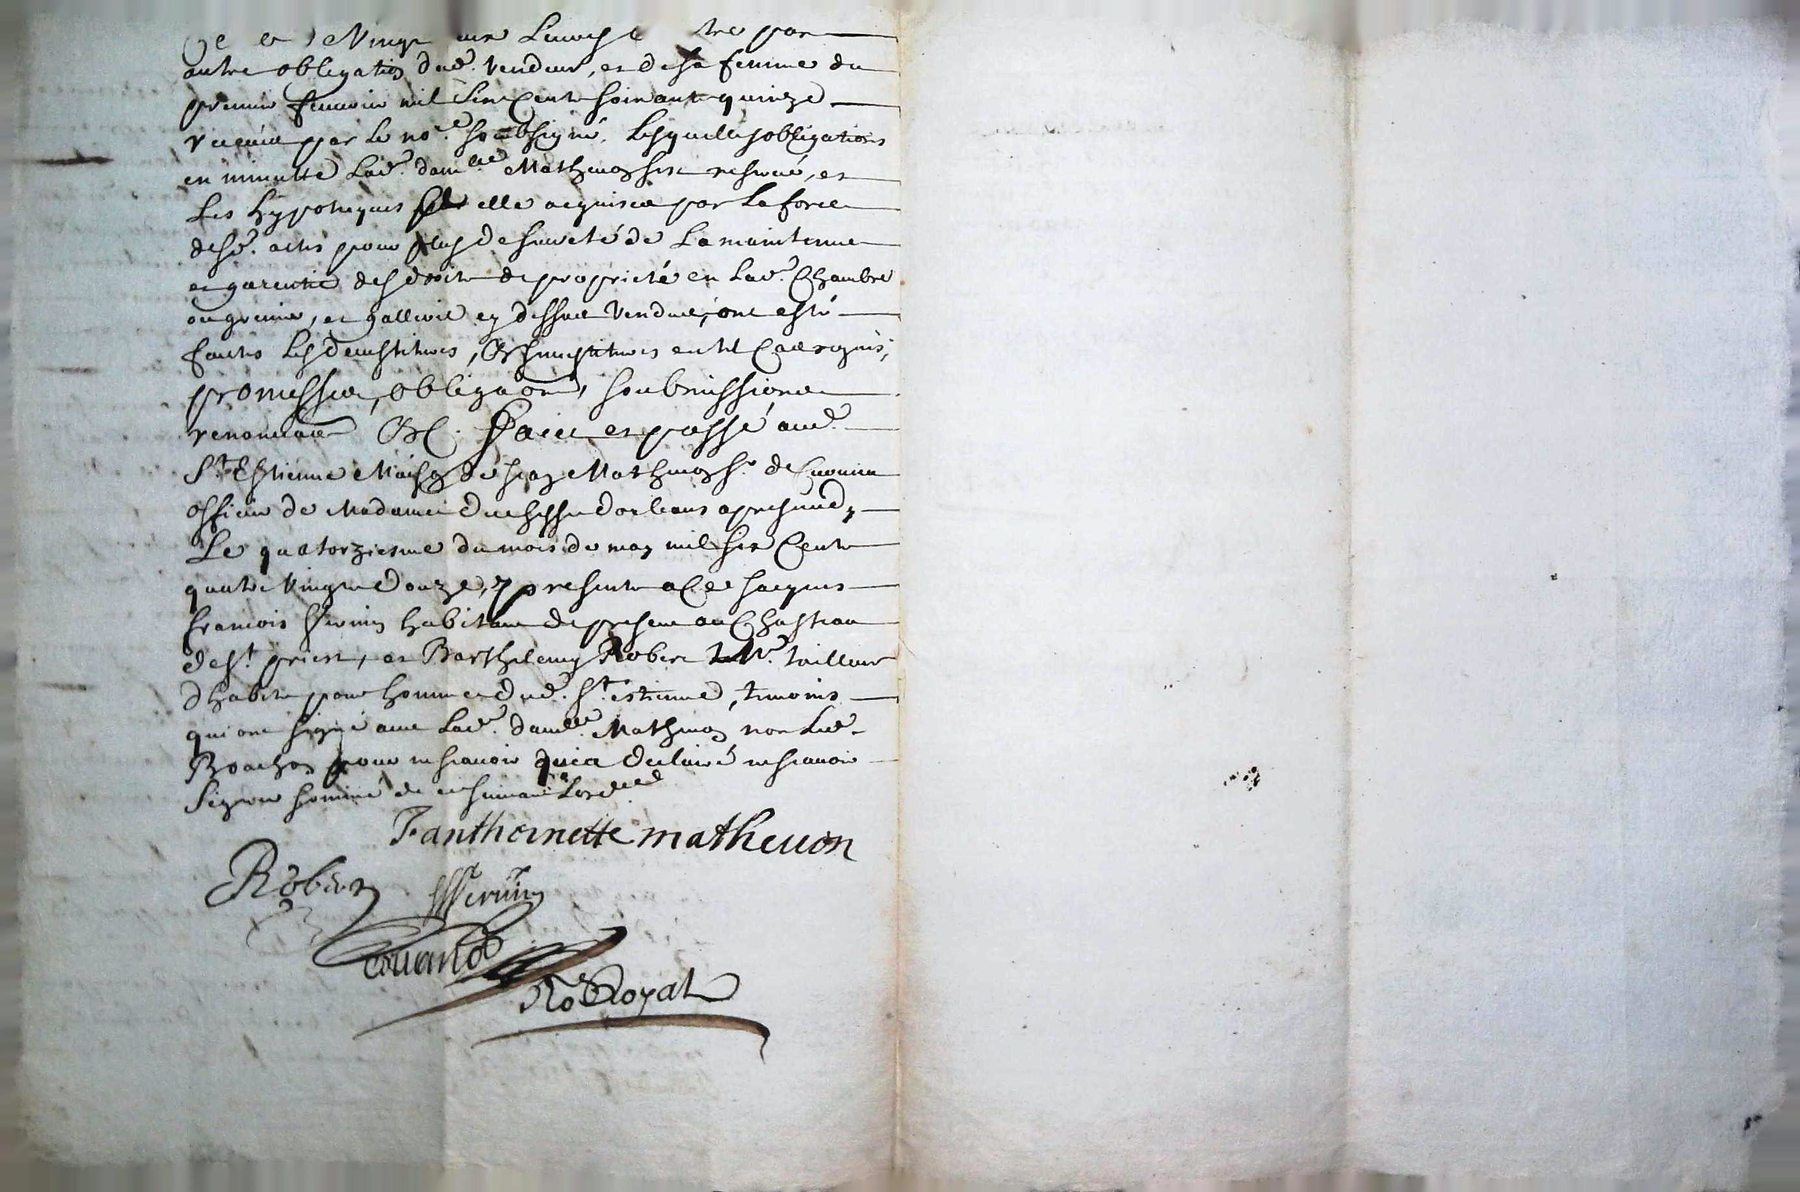 autre obligation dud. vendeur, et de sa femme du
premier fevrier mil six cent soixante quinze
receüe par le no.re soubsigné. Lesquelles obligations
en minutte Lad. dam.lle Matheuon s'est reservé, et
Les hypoteques par elle acquises par La force
desd. actes pour plus de sureté de La maintenue
et garentie des droits de proprieté en Lad. Chambre
ou grenier, et gallerie cy dessus vendue, ont esté
faictes Les devestitures, & investitures en tel cas requis,
promesses, obligaons, soubmissions
renonciaons &c. Faict et passé aud.
S.t Estienne Maison de Matheuon s.r de
officier de Madame duchesse d'orleans apres midy
Le quatorziesme du mois de may mil six Cent
quatre vingt douze, presents a ce Jacques
francois habitant de present au Chasteau
de S.t priest, et Barthelemy Robert M.e tailleur
d'habits pour homme dud. S.t estienne, temoins
qui ont signé avec Lad. dam.lle Matheuon non Led.
pour ne scavoir qui a declairé ne scavoir
signer sommé de ce suivant L'ord.ce
F anthoinette matheuon
Robert
No.re Royal